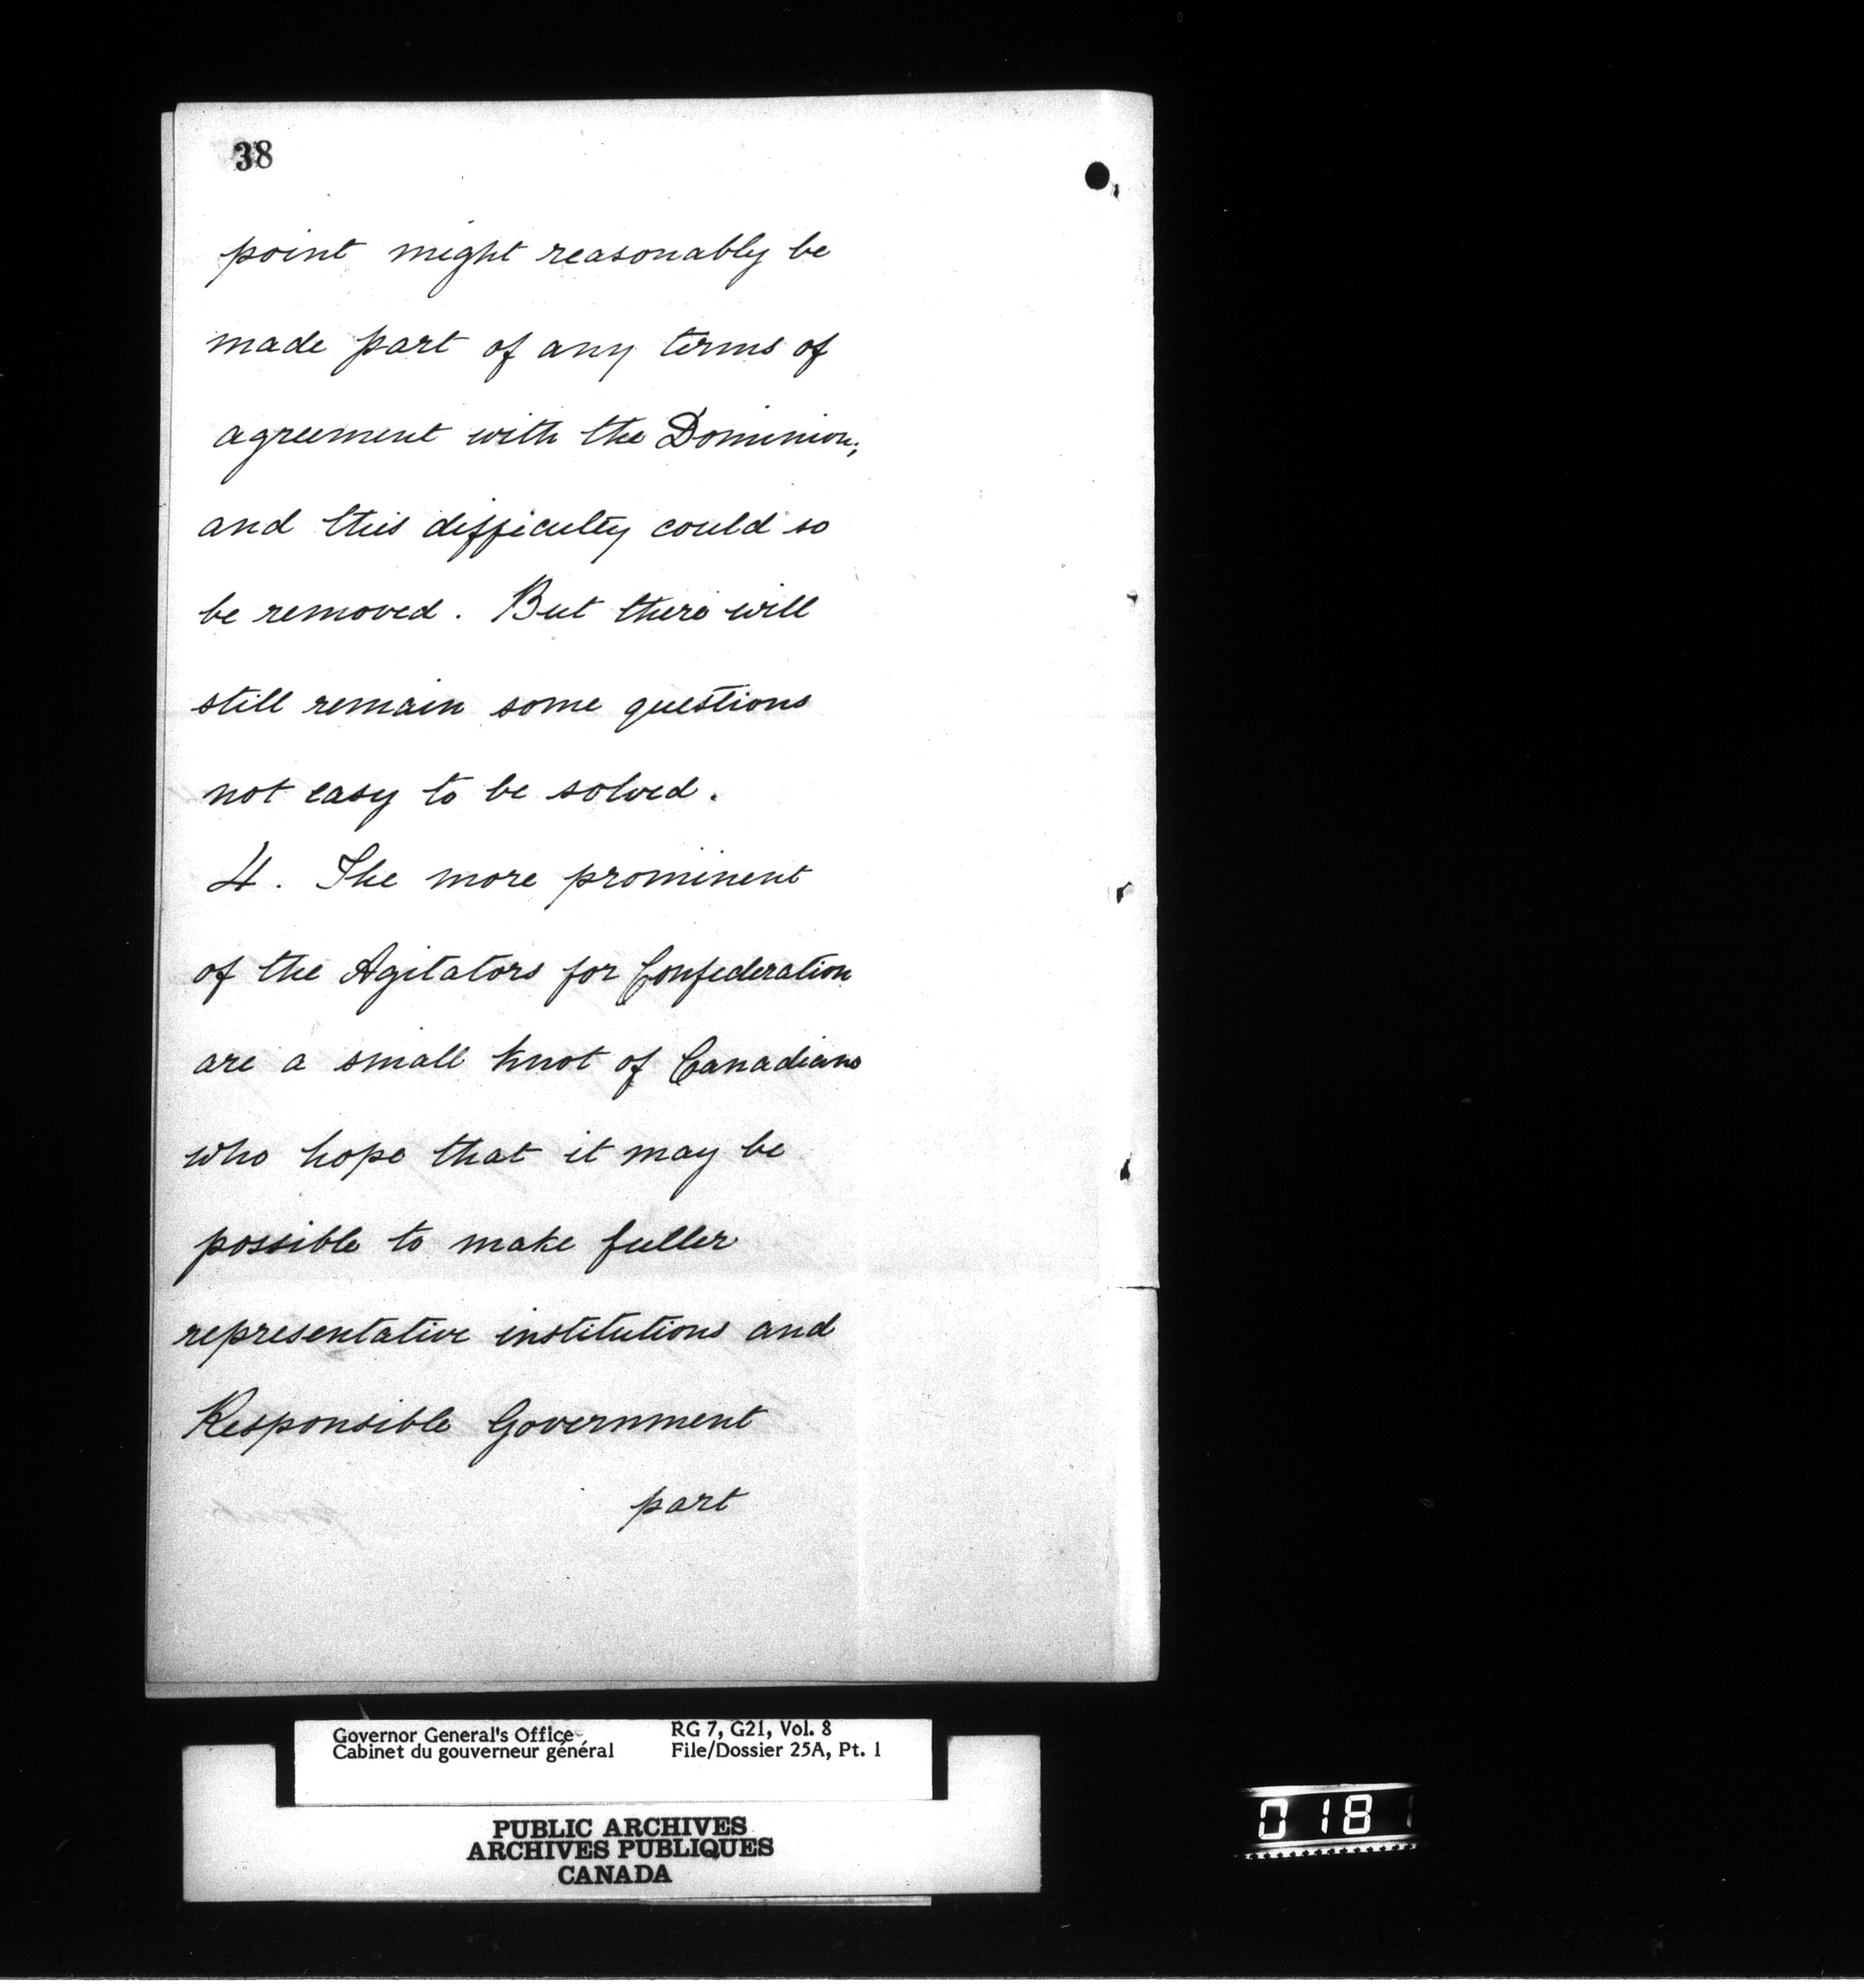 38
point might reasonably be
made part of any terms of
agreement with the Dominion;
and this difficulty could so
be removed. But there will
still remain some questions
not easy to be solved.
4. The more prominent
of the Agitators for Confederation
are a small knot of Canadians
who hope that it may be
possible to make fuller
representative institutions and
Responsible Government
part
Governor General's Office
Cabinet du gouverneur général
RG 7, G21, Vol. 8
File/Dossier 25A, Pt. 1
PUBLIC ARCHIVES
ARCHIVES PUBLIQUES
CANADA
018